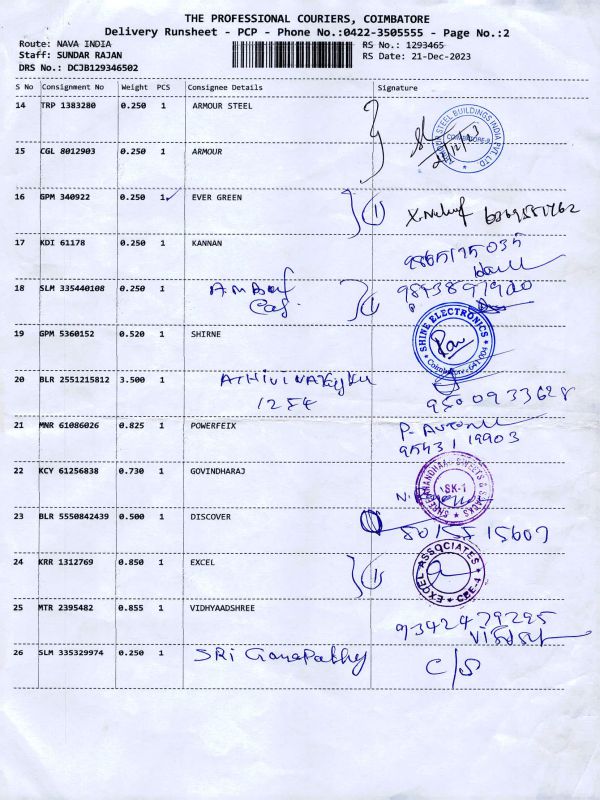 THE PROFESSIONAL COURIERS, COIMBATORE
Delivery Runsheet - PCP - Phone No.:0422-3505555 - Page No.:2
Route: NAVA INDIA
RS No.: 1293465
Staff: SUNDAR RAJAN
RS Date: 21-Dec-2023
DRS No.: DCJB129346502
S No Consignment No Weight PCS Consignee Details Signature
14 TRP 1383280 0.250 1 ARMOUR STEEL
ARMOUR STEEL BUILDINGS INDIA PVT. LTD
15 CGL 8012903 0.250 1 ARMOUR
16 GPM 340922 0.250 1 EVER GREEN
17 KDI 61178 0.250 1 KANNAN
9865175035
18 SLM 335440108 0.250 1
9893897900
19 GPM 5360152 0.520 1 SHIRNE
SHINE ELECTRONICS
Coimbatore-641 004
20 BLR 2551215812 3.500 1
1254
9500933628
21 MNR 61086026 0.825 1 POWERFEIX
9543119903
22 KCY 61256838 0.730 1 GOVINDHARAJ
SK-1
23 BLR 5550842439 0.500 1 DISCOVER
24 KRR 1312769 0.850 1 EXCEL
EXCEL ASSOCIATES
CBE-4
25 MTR 2395482 0.855 1 VIDHYAADSHREE
9342479295
26 SLM 335329974 0.250 1 SRi Ganapathy C/S